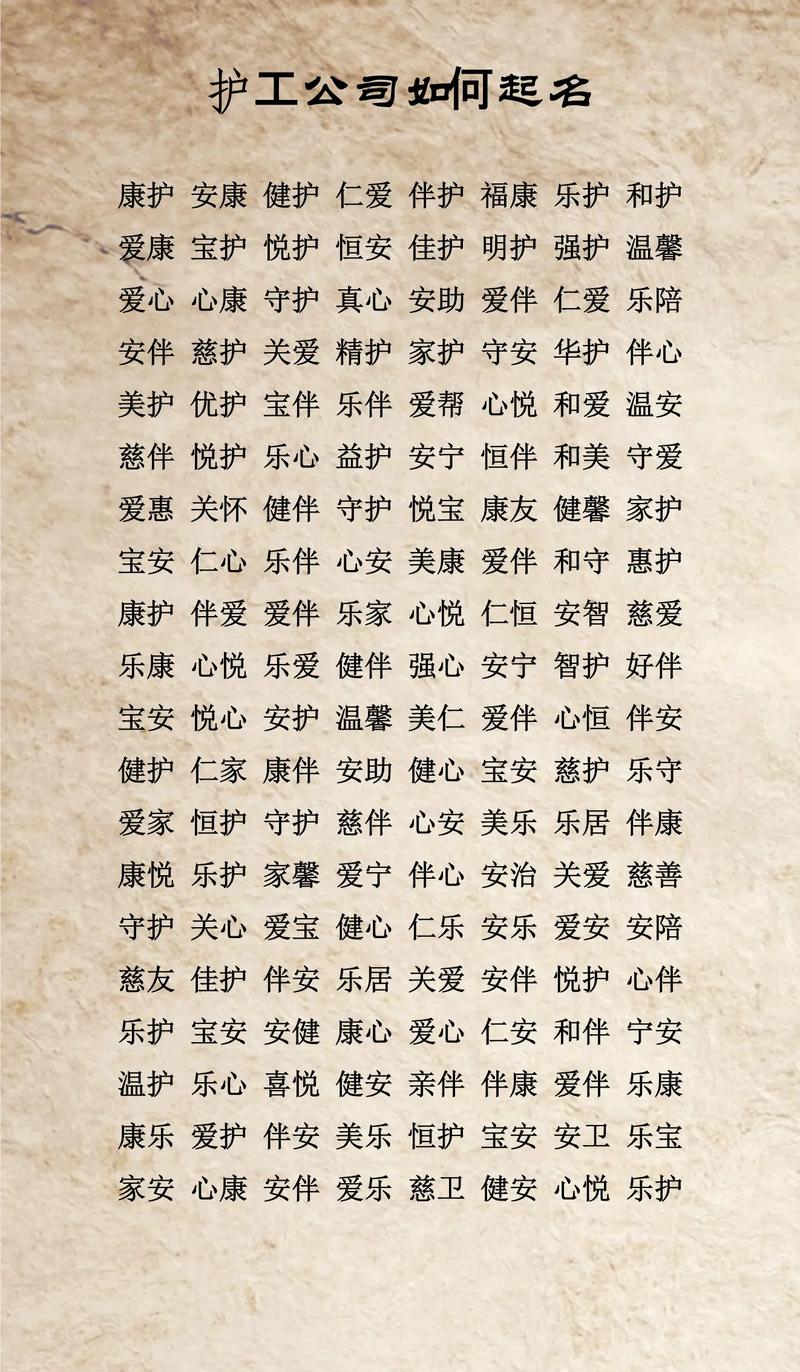 护工公司如何起名
康护 安康 健护 仁爱 伴护 福康 乐护 和护
爱康 宝护 悦护 恒安 佳护 明护 强护 温馨
爱心 心康 守护 真心 安助 爱伴 仁爱 乐陪
安伴 慈护 关爱 精护 家护 守安 华护 伴心
美护 优护 宝伴 乐伴 爱帮 心悦 和爱 温安
慈伴 悦护 乐心 益护 安宁 恒伴 和美 守爱
爱惠 关怀 健伴 守护 悦宝 康友 健馨 家护
宝安 仁心 乐伴 心安 美康 爱伴 和守 惠护
康护 伴爱 爱伴 乐家 心悦 仁恒 安智 慈爱
乐康 心悦 乐爱 健伴 强心 安宁 智护 好伴
宝安 悦心 安护 温馨 美仁 爱伴 心恒 伴安
健护 仁家 康伴 安助 健心 宝安 慈护 乐守
爱家 恒护 守护 慈伴 心安 美乐 乐居 伴康
康悦 乐护 家馨 爱宁 伴心 安治 关爱 慈善
守护 关心 爱宝 健心 仁乐 安乐 爱安 安陪
慈友 佳护 伴安 乐居 关爱 安伴 悦护 心伴
乐护 宝安 安健 康心 爱心 仁安 和伴 宁安
温护 乐心 喜悦 健安 亲伴 伴康 爱伴 乐康
康乐 爱护 伴安 美乐 恒护 宝安 安卫 乐宝
家安 心康 安伴 爱乐 慈卫 健安 心悦 乐护